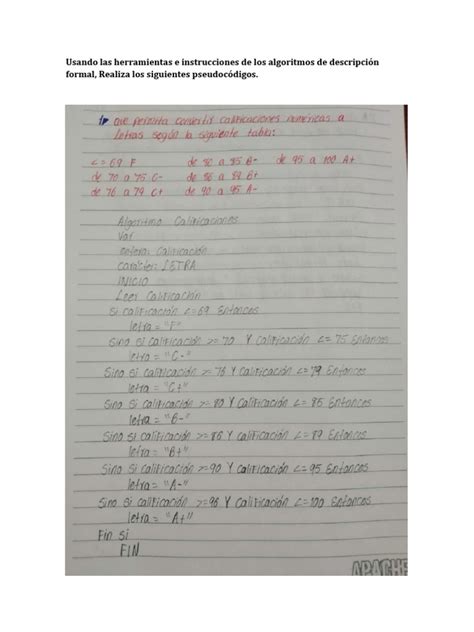 Usando las herramientas e instrucciones de los algoritmos de descripción
formal, Realiza los siguientes pseudocódigos.
1º que permita convertir calificaciones numericas a
Letras según la siguiente tabla:
<= 69 F de 80 a 85 B- de 95 a 100 A+
de 70 a 75 C- de 86 a 89 B+
de 76 a 79 C+ de 90 a 95 A-
Algoritmo Calificaciones
Var
entera: Calificación
Carácter: LETRA
INICIO
Leer Calificación
Si calificación <= 69 Entonces
letra = "F"
Sino Si calificación >= 70 Y Calificación <= 75 Entonces
letra = "C-"
Sino Si calificación >= 76 Y Calificación <= 79 Entonces
letra = "C+"
Sino Si calificación >= 80 Y Calificación <= 85 Entonces
letra = "B-"
Sino Si calificación >= 86 Y Calificación <= 89 Entonces
letra = "B+"
Sino Si calificación >= 90 Y Calificación <= 95 Entonces
letra = "A-"
Sino Si calificación >= 96 Y Calificación <= 100 Entonces
letra = "A+"
Fin Si
FIN
APACHE